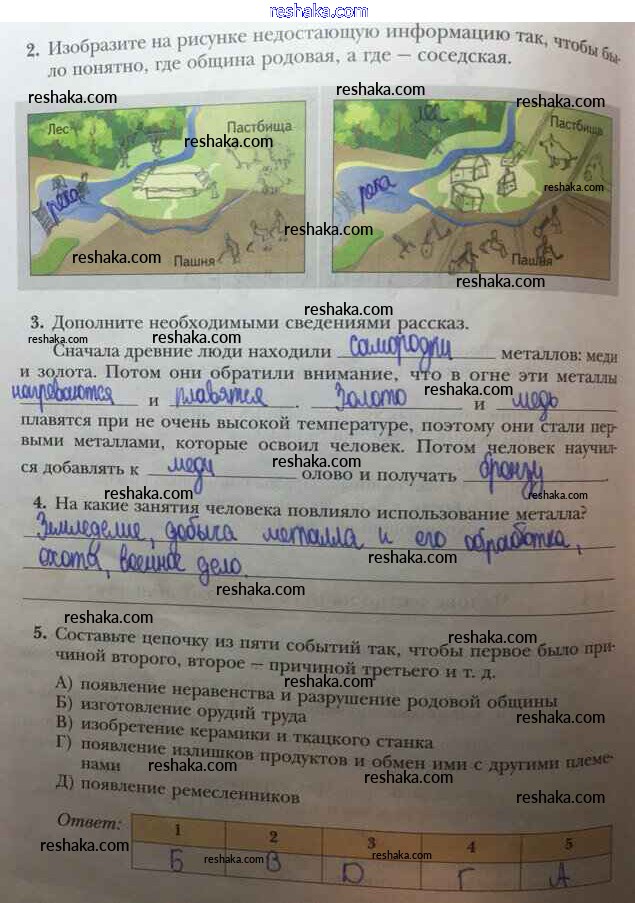 reshaka.com
2. Изобразите на рисунке недостающую информацию так, чтобы бы-
ло понятно, где община родовая, а где — соседская.
reshaka.com
reshaka.com
Лес
Пастбища
reshaka.com
река
reshaka.com
Пашня
reshaka.com
лес
Пастбища
reshaka.com
река
reshaka.com
Пашня
reshaka.com
3. Дополните необходимыми сведениями рассказ.
reshaka.com
Сначала древние люди находили самородки металлов: меди
reshaka.com
и золота. Потом они обратили внимание, что в огне эти металлы
reshaka.com
нагреваются и плавятся. Золото и медь
плавятся при не очень высокой температуре, поэтому они стали пер-
выми металлами, которые освоил человек. Потом человек научил-
reshaka.com
ся добавлять к меди олово и получать бронзу.
reshaka.com
reshaka.com
4. На какие занятия человека повлияло использование металла?
Земледелие, добыча металла и его обработка,
reshaka.com
охота, военное дело.
reshaka.com
reshaka.com
5. Составьте цепочку из пяти событий так, чтобы первое было при-
чиной второго, второе — причиной третьего и т. д.
reshaka.com
А) появление неравенства и разрушение родовой общины
Б) изготовление орудий труда
reshaka.com
В) изобретение керамики и ткацкого станка
Г) появление излишков продуктов и обмен ими с другими племе-
нами
reshaka.com
reshaka.com
Д) появление ремесленников
reshaka.com
Ответ:
1 2 3 4 5
reshaka.com
reshaka.com
reshaka.com
Б В D Г А